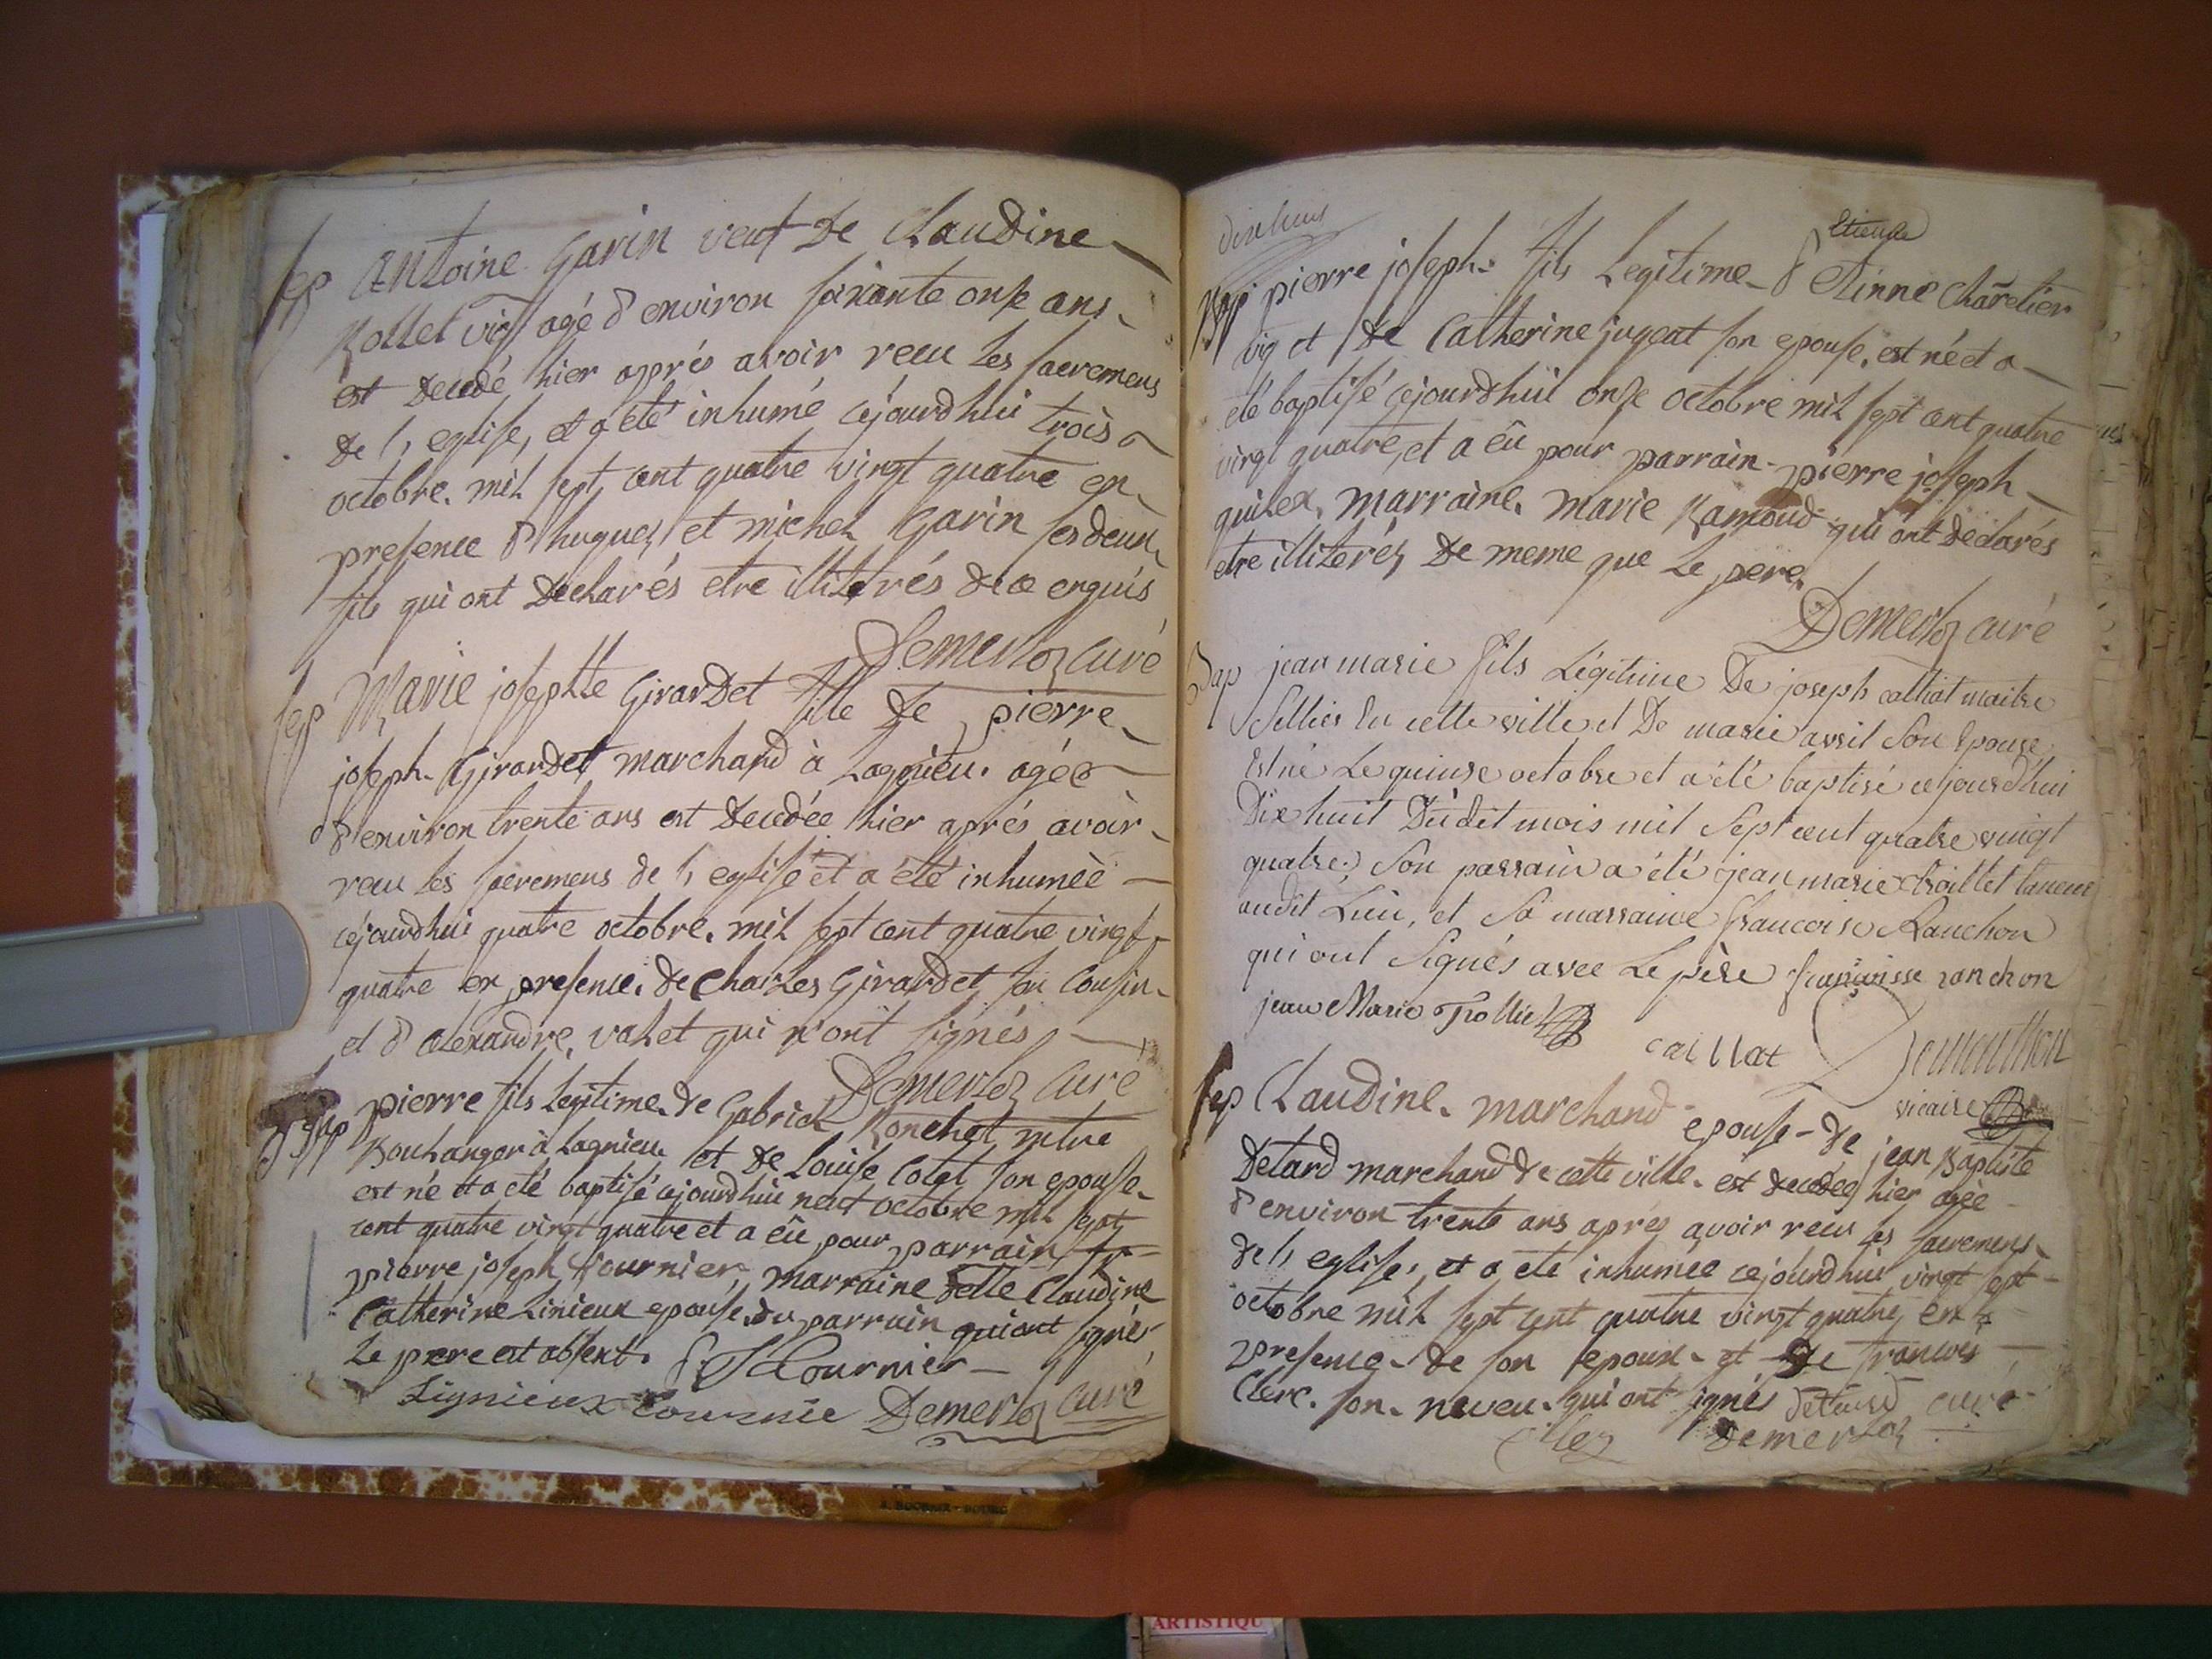 sep Antoine Garin veuf de Claudine
Rollet vig agé d environ soixante onze ans
est decedé hier aprés avoir recu les sacremens
de l, eglise, et a été inhumé cejourdhui trois
octobre. mil sept cent quatre vingt quatre en
presence d hugues et michel Garin ses deux
fils qui ont declarés etre illiterés de ce enquis
Demerloz curé
sep Marie josephte Girardet fille de pierre
joseph. Girardet marchand à Lagnieu. agée
d environ trente ans est decedée hier aprés avoir
recu les sacremens de l, eglise et a été inhumèe
cejourdhui quatre octobre. mil sept cent quatre vingt
quatre en presence. de Charles Girardet son Cousin
et d alexandre. valet qui n'ont signés
Demerloz Curé
Bap pierre fils legitime. de Gabriel Ronchet mtre
Boulanger à Lagnieu. et de Louise Cotet son epouse.
est né et a été baptisé cejourdhui neuf octobre mil sept
cent quatre vingt quatre et a êu pour parrain
pierre joseph fournier, marraine delle Claudine
Catherine Linieux epouse du parrain qui ont signés
Le pere est absent. Fournier
Lignieux Fournié Demerloz Curé
dixhuit
etienne
Bap pierre joseph. fils Legitime d Etinne Charetier
vig et de Catherine jugeat son epouse. est né et a
eté baptisé cejourdhui onze octobre mil sept cent quatre
vingt quatre, et a êu pour parrain pierre joseph
quilex. marraine. marie Ramoud qui ont declarés
etre illiterés de meme que le pere.
Demerloz curé
Bap jean marie fils Légitime De joseph calliat maitre
Sellier En cette ville et De marie avril Son Epouse
Est né Le quinse octobre et a été baptisé cejourd'hui
Dix huit Dudit mois mil Sept cent quatre vingt
quatre. Son parrain a été jean marie trolliet taneur
audit Lieu, et Sa marraine francoise Ranchon
qui ont Signés avec Le père françoisse ranchon
jean Marie Trolliet
caillat
vicaire
sep Claudine. marchand epouse de jean Baptiste
Detard marchand de cette ville. est decedée hier agèe
d environ trente ans aprés avoir recu les sacremens
de l, eglise, et a eté inhumèe cejourdhui vingt sept
octobre mil sept cent quatre vingt quatre, en
presence de son epoux et de francois
Clerc. son. neveu. qui ont signés detard curé
Demerloz
ARTISTIQU